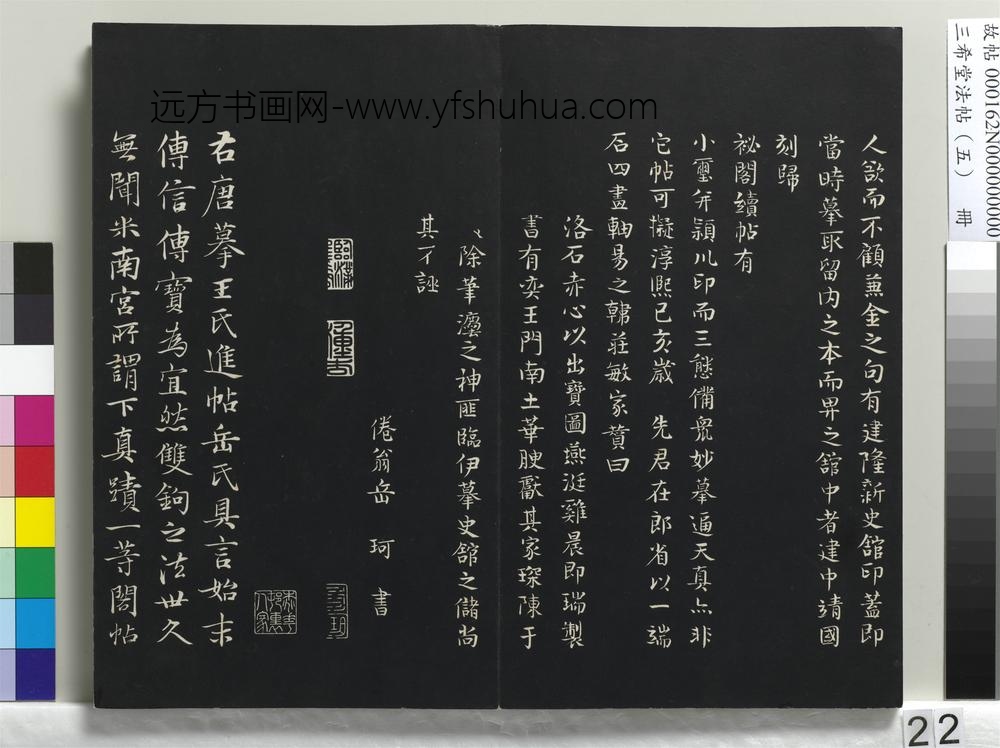 远方书画网-www.yfshuhua.com
故帖 000162N000000000
三希堂法帖（五） 冊
人欲而不顧蒹金之句有建隆新史舘印蓋即
當時摹取留内之本而畀之舘中者建中靖國
刻歸
祕閣續帖有
小璽并潁川印而三態備衆妙摹逼天真亦非
它帖可擬淳熙己亥歲 先君在郎省以一端
石四畫軸易之韓莊敏家贊曰
洛石赤心以出寶圖燕涎雞晨即瑞製
書有奕王門南土華腴厭其家琛陳于
除筆瀍之神匪臨伊摹史舘之儲尚
其不誣
倦翁岳 珂 書
右唐摹王氏進帖岳氏具言始末
傳信傳寶為宜然雙鉤之法世久
無聞米南宮所謂下真蹟一等閣帖
22